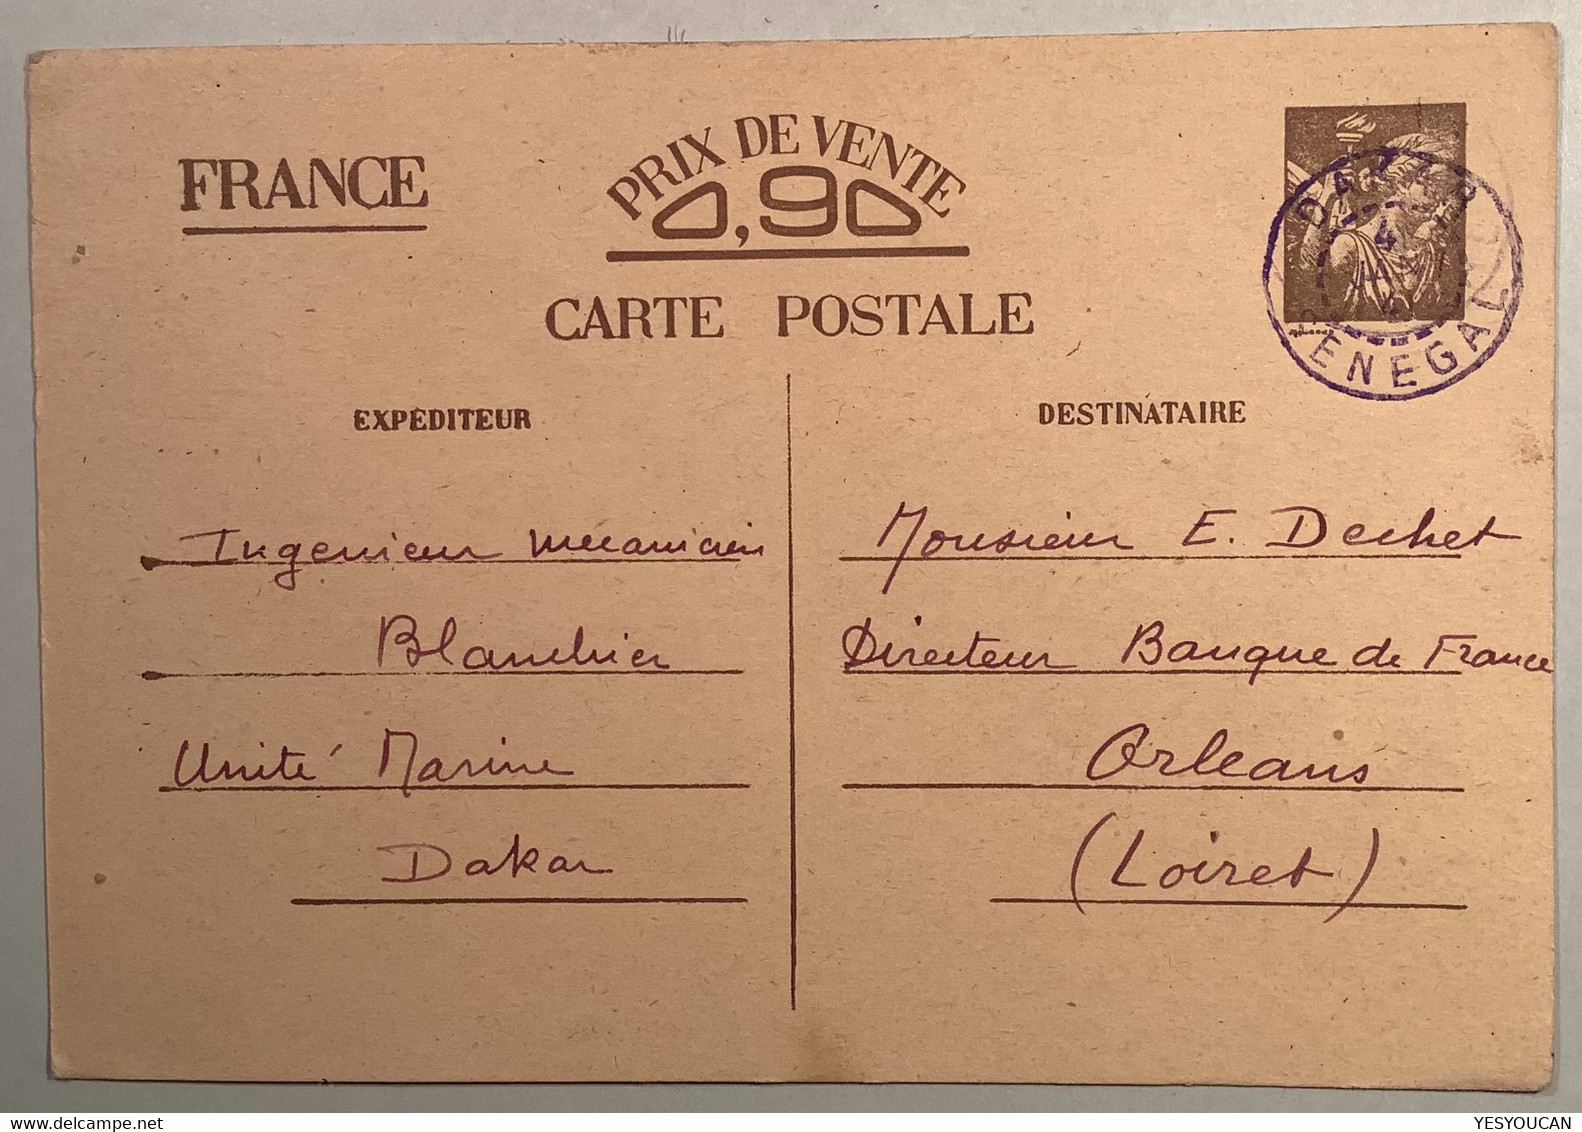 FRANCE
PRIX DE VENTE
0,90
CARTE POSTALE
DAKAR
4
SENEGAL
EXPÉDITEUR
DESTINATAIRE
Ingenieur mecanicien
Blanchier
Unité Marine
Dakar
Monsieur E. Dechet
Directeur Banque de France
Orleans
(Loiret)
YESYOUCAN